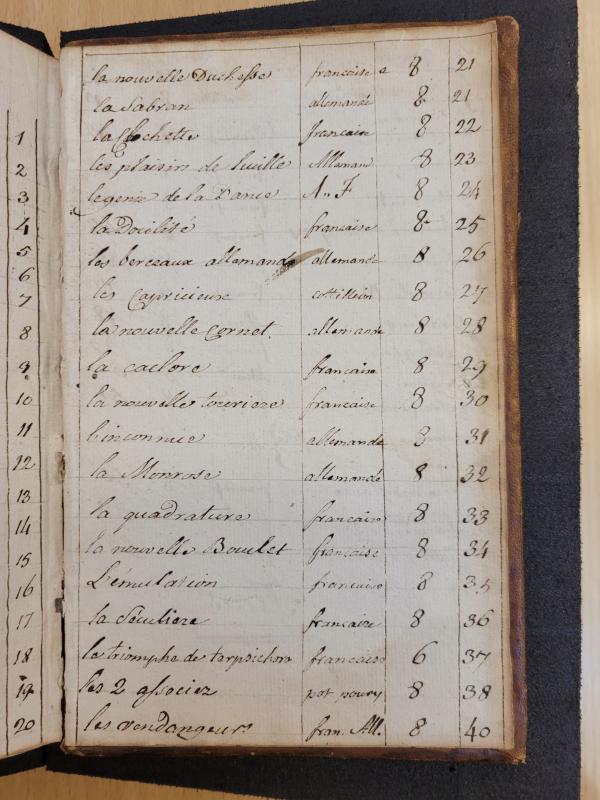 la nouvelle Duchesse francaise e 8 21
la Sabran allemande 8 21
la Clochette francaise 8 22
les plaisirs de huille Allemand 8 23
legenie de la Dance A., F 8 24
la Docileté francaise 8 25
les berceaux allemande allemande 8 26
les Capricieux cottilleon 8 27
la nouvelle Cornet. allemande 8 28
la caclore francaise 8 29
la nouvelle francaise 8 30
l'inconnue allemande 8 31
la Monrose allemande 8 32
la quadrature francaise 8 33
la nouvelle Boulet francaise 8 34
L'émulation francaise 8 35
la Séculiere francaize 8 36
le triomphe de terpsichore francaise 6 37
les 2 associez pot poury 8 38
les vendangeurs fran. All. 8 40
1
2
3
4
5
6
7
8
9
10
11
12
13
14
15
16
17
18
19
20